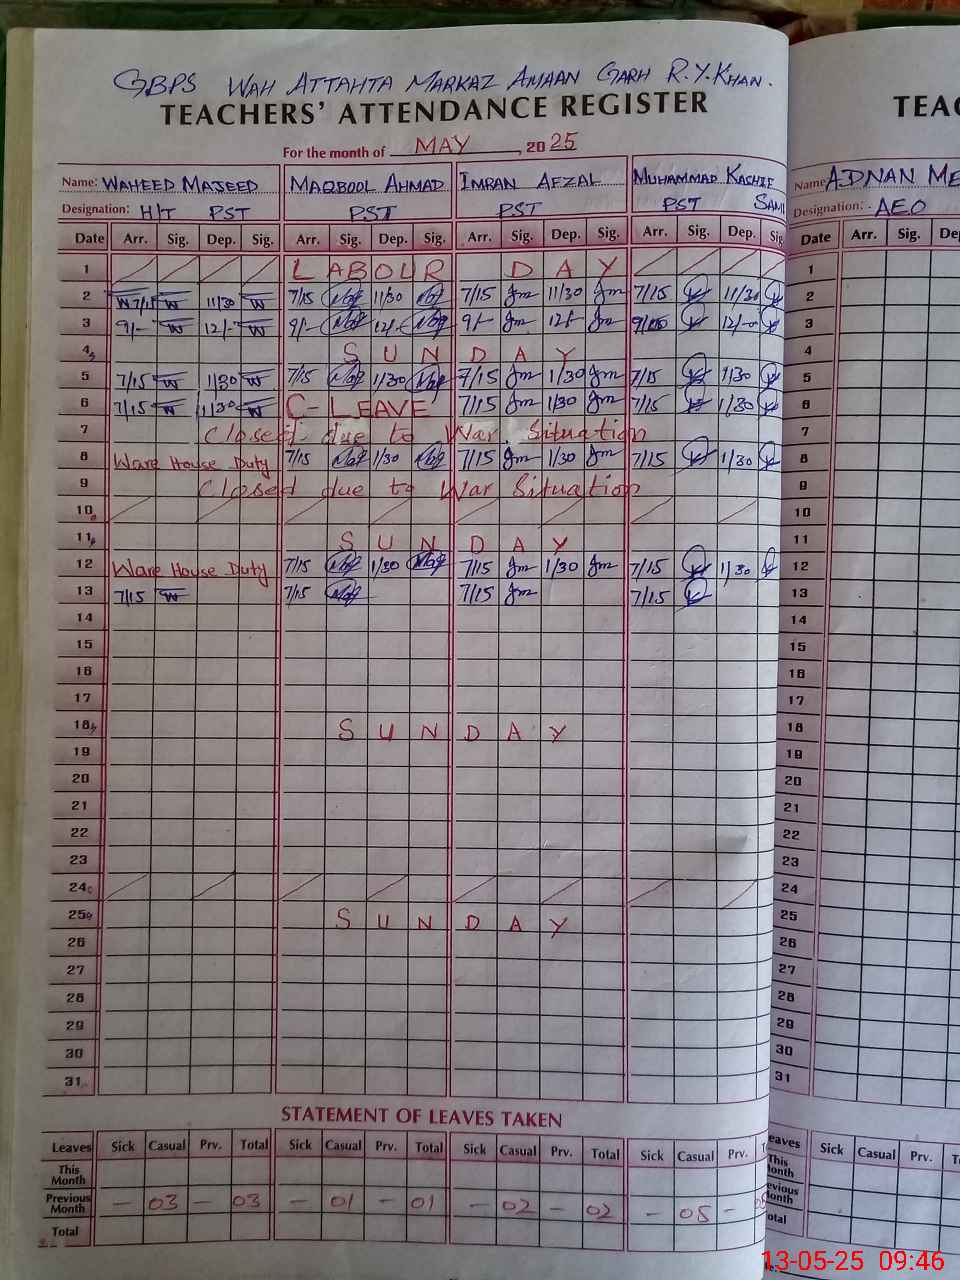 GBPS WAH ATTAHTA MARKAZ AMAAN GARH R.Y.KHAN.
TEACHERS' ATTENDANCE REGISTER
For the month of MAY, 2025
Name: WAHEED MAJEED MAQBOOL AHMAD IMRAN AFZAL MUHAMMAD KASHIF
Designation: H/T PST PST PST PST SAMI
Date Arr. Sig. Dep. Sig. Arr. Sig. Dep. Sig. Arr. Sig. Dep. Sig. Arr. Sig. Dep. Sig
1 LABOUR DAY
2 7/15 W 11/30 W 7/15 11/30 7/15 Jm 11/30 Jm 7/15 11/30
3 9/- W 12/- W 9/- 12/- 9/- Jm 12/- Jm 12/-
4 SUNDAY
5 7/15 W 1/30 W 7/15 1/30 7/15 Jm 1/30 Jm 7/15 1/30
6 7/15 W 1/30 W C-LEAVE 7/15 Jm 1/30 Jm 7/15 1/30
7 Closed due to War Situation
8 Ware House Duty 7/15 1/30 7/15 Jm 1/30 Jm 7/15 1/30
9 Closed due to War Situation
10
11 SUNDAY
12 Ware House Duty 7/15 1/30 7/15 Jm 1/30 Jm 7/15 1/30
13 7/15 W 7/15 7/15 Jm 7/15
14
15
16
17
18 SUNDAY
19
20
21
22
23
24
25 SUNDAY
26
27
28
29
30
31
STATEMENT OF LEAVES TAKEN
Leaves Sick Casual Prv. Total Sick Casual Prv. Total Sick Casual Prv. Total Sick Casual Prv.
This
Month
Previous
Month - 03 - 03 - 01 - 01 - 02 - 02 - 05 -
Total
TEAC
Name ADNAN ME
Designation: AEO
Date Arr. Sig. Dep
1
2
3
4
5
6
7
8
9
10
11
12
13
14
15
16
17
18
19
20
21
22
23
24
25
26
27
28
29
30
31
eaves Sick Casual Prv. T
This
Month
evious
onth
otal
13-05-25 09:46